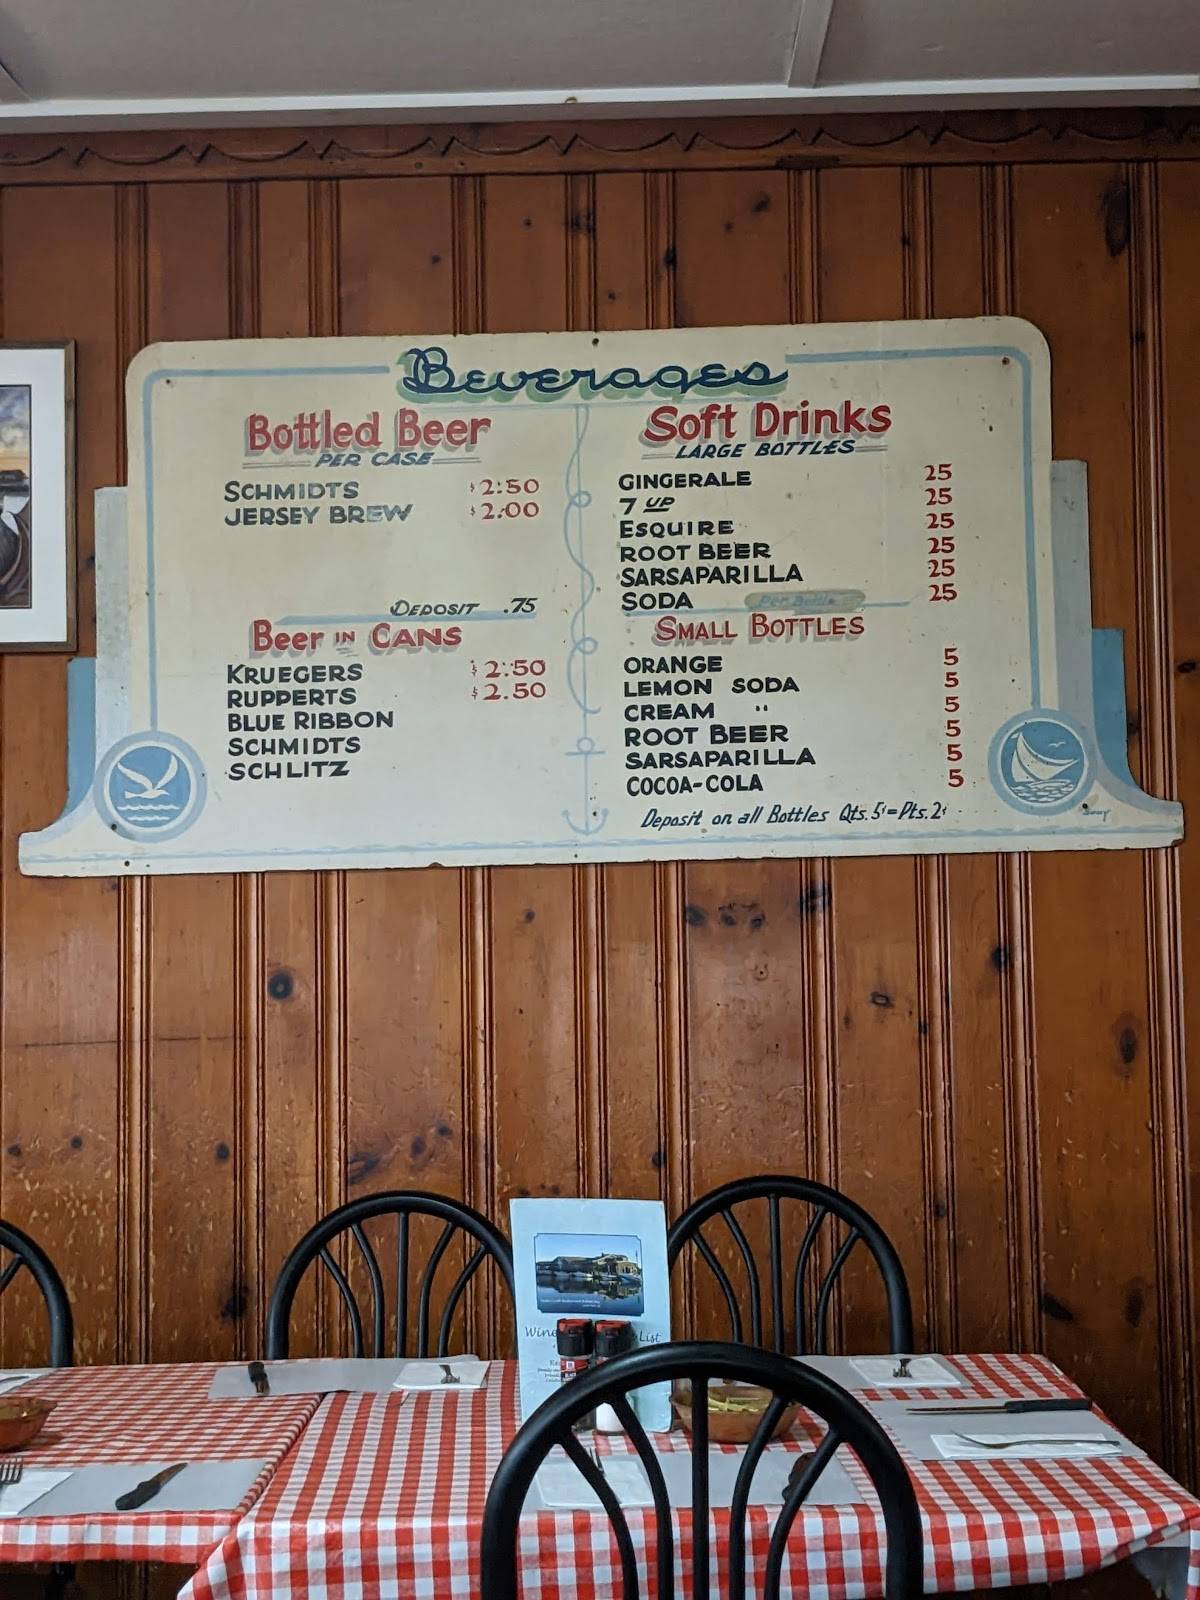 Beverages
Bottled Beer
PER CASE
SCHMIDTS $2:50
JERSEY BREW $2:00
DEPOSIT .75
Beer IN CANS
KRUEGERS $2:50
RUPPERTS $2.50
BLUE RIBBON
SCHMIDTS
SCHLITZ
Soft Drinks
LARGE BOTTLES
GINGERALE 25
7 UP 25
ESQUIRE 25
ROOT BEER 25
SARSAPARILLA 25
SODA Per Bottle 25
SMALL BOTTLES
ORANGE 5
LEMON SODA 5
CREAM " 5
ROOT BEER 5
SARSAPARILLA 5
COCOA-COLA 5
Deposit on all Bottles Qts. 5¢=Pts. 2¢
Wine List